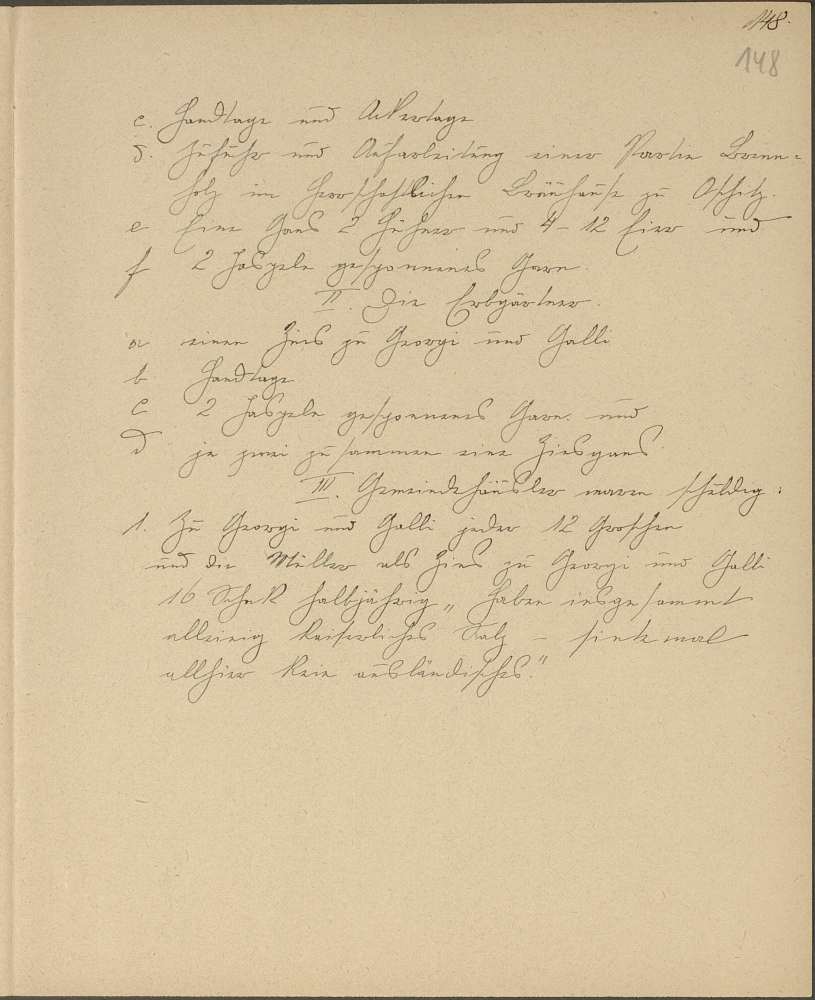 148.
148
c. Handtage und Ackertage
d. Zufuhr und Aufarbeitung einer Partie Brenn=
holz im herrschaftlichen Bräuhause zu Oschitz.
e Eine Gans 2 Hühner und 4–12 Eier und
f 2 Haspeln gesponnenes Garn.
II. Die Erbgärtner.
a einen Zins zu Georgi und Galli
b Handtage
c 2 Haspeln gesponnenes Garn. und
d je zwei zusammen eine Zinsgans
III. Gemeindehäusler waren schuldig:
1. Zu Georgi und Galli jeder 12 Groschen
und die Müller als Zins zu Georgi und Galli
16 Schck halbjährig „Haben insgesammt
alleinig Kaiserliches Salz – sintemal
allhier kein ausländisches."